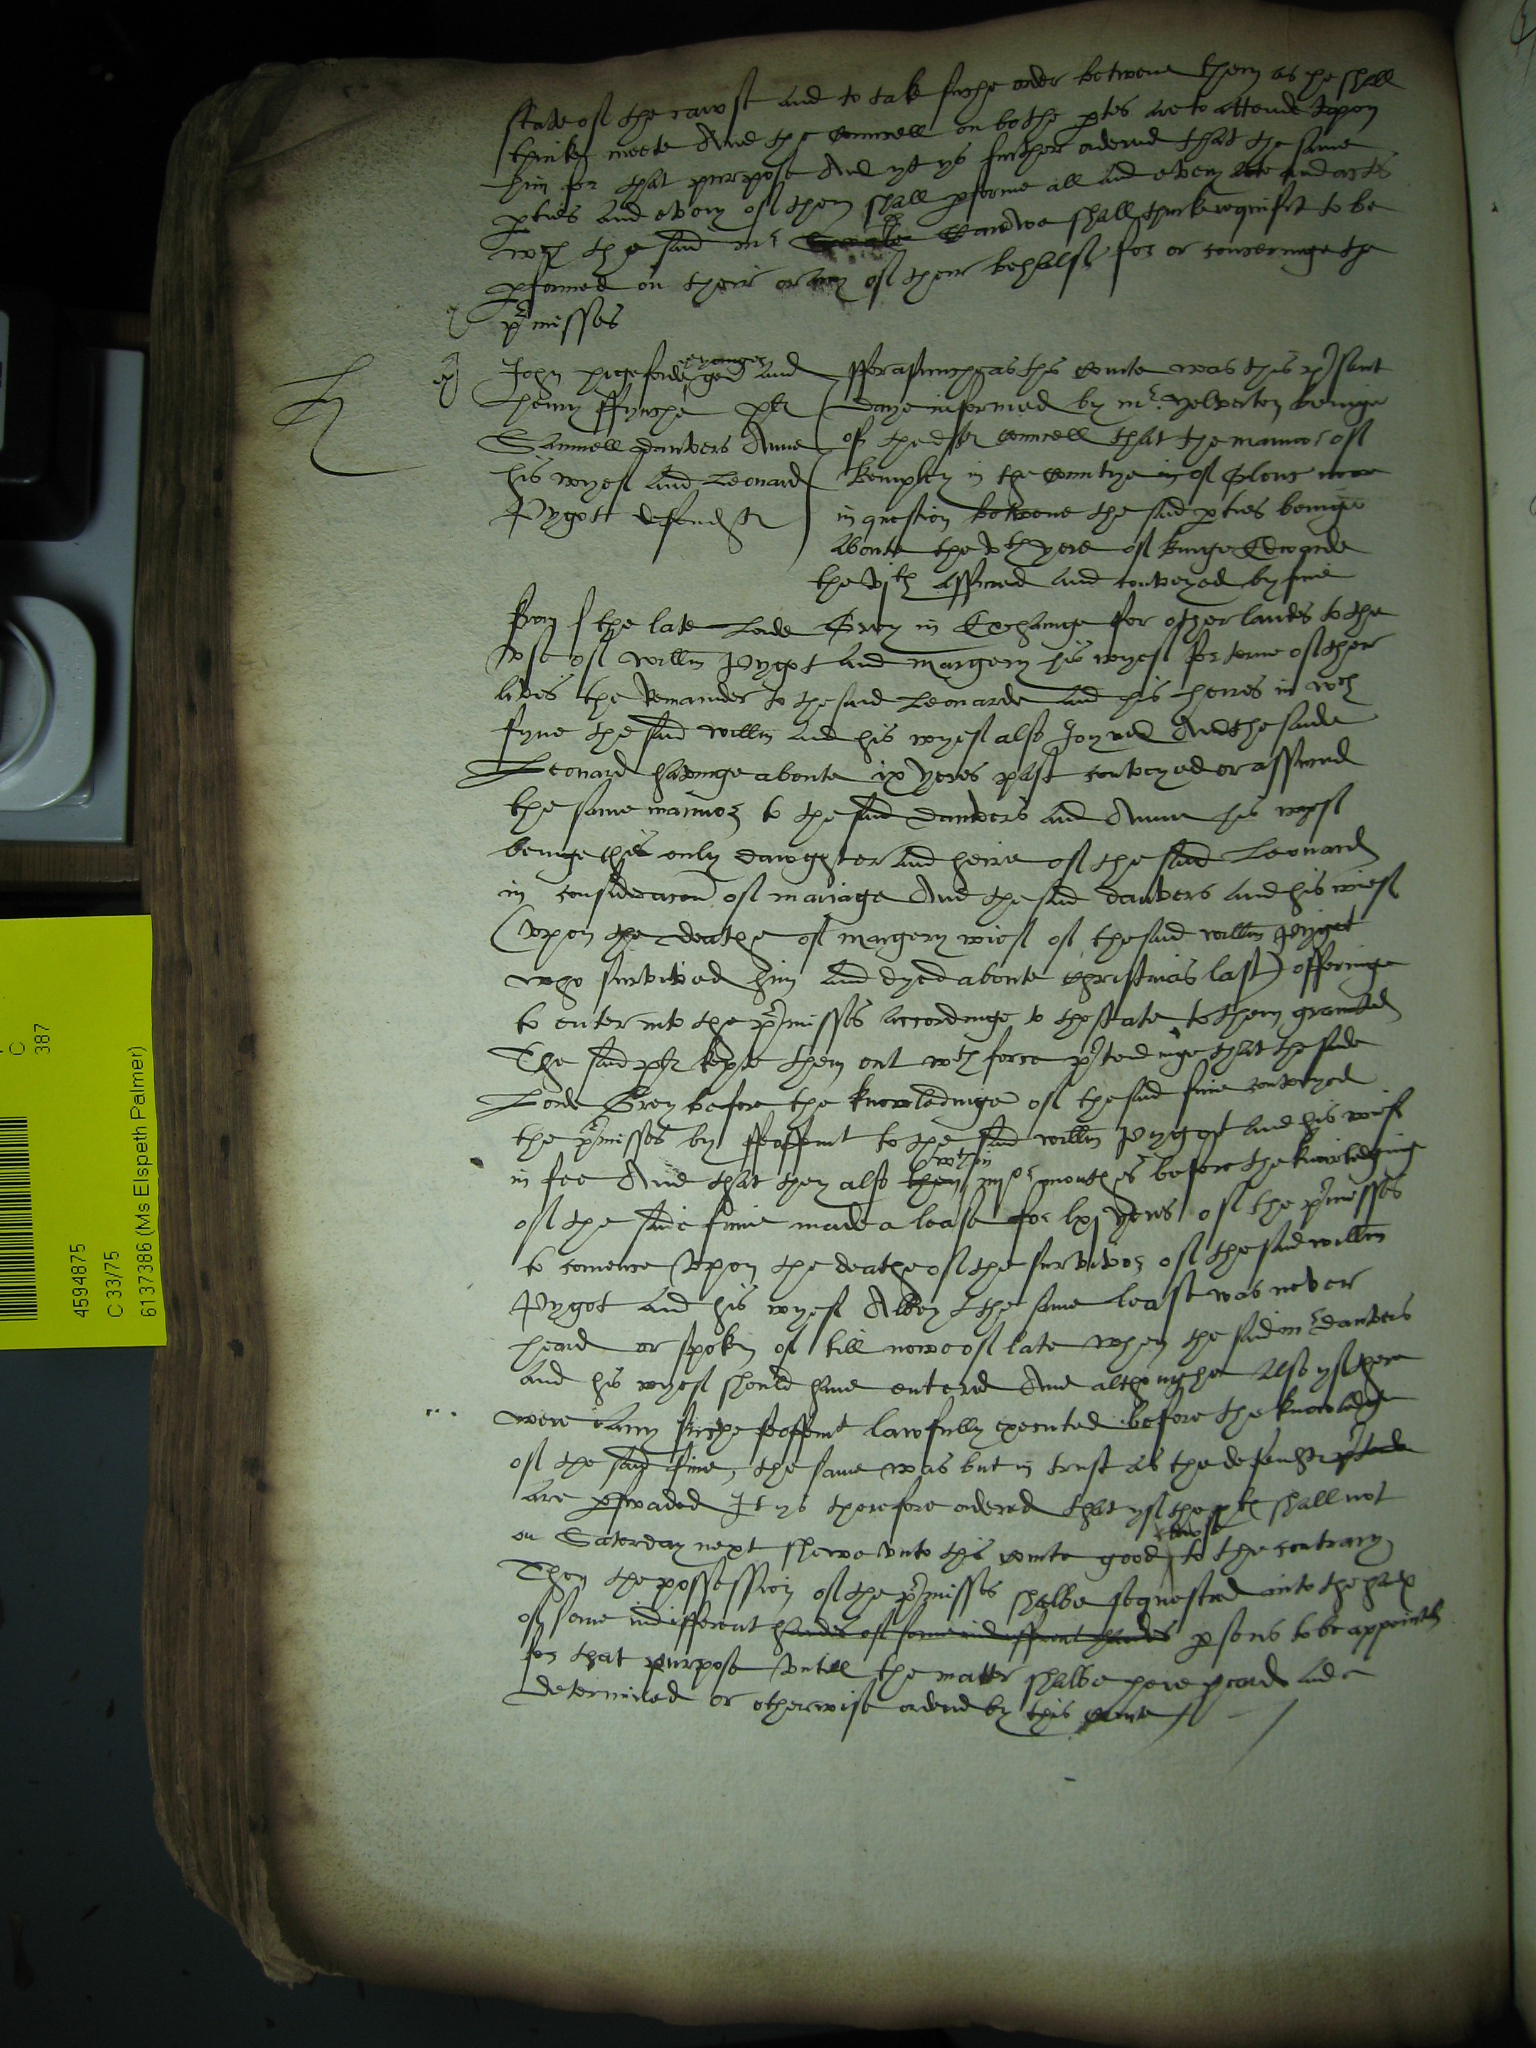 state of the cawse and to take suche order betwene them as he shall
thinke meete And the counsell on bothe ptes are to attende upon
him for that purpose And yt ys further ordered that the same
pties and every of them shall pforme all and every acte and actes
wch the said mr Carewe shall thinke requisit to be
pformed on their or any of their behalfe for or concerninge the
pmisses
John pigeforde ye yonger and
henry ffynche plt
Samuell danvers Anne
his wyef and Leonard
Pygott defendtes
fforasmuche as this courte was this psent
daye informed by mr yelverton beinge
of the def councell that the mannor of
kempley in the countye of Glouc nowe
in question betwene the said pties beinge
aboute the vth yere of kinge Edwarde
the vjth assured and conveyed by fine
from the late Lorde Grey in Exchaunge for other landes to the
use of willm Pygot and margery his wyef for terme of their
lives the Remainder to the said Leonarde and his heires in wch
fyne the said willm and his wyef also Joyned And the saide
Leonard havinge aboute ix yeres past conveyed or assured
the same mannor to the said danvers and Anne his wyef
beinge the only dawghter and heire of the said Leonard
in consideracon of mariage And the said danvers and his wief
(upon the deathe of margery wief of the said willm Pygot
who survived him and dyed aboute christmas last) offeringe
to enter into the pmisses accordinge to thestate to them graunted
The said plt kepte them out wth force ptendinge that the saide
Lorde Grey before the knowledginge of the said fine conveyed
the pmisses by ffeoffemt to the said willm Pygot and his wief
in fee And that they also then wthin monthes before the knowledging
of the saide fine made a lease for lxj yeres of the pmisses
to comence upon the deathe of the survivor of the said willm
Pygot and his wyef Albeyt the same lease was never
heard or spoken of till nowe of late when the said mr danvers
and his wyef should have entered And althoughe also yf there
were any suche feoffemt lawfully executed before the knowledge
of the said fine, the same was but in trust as the defendtes
are pswaded It ys therefore ordered that yf the plt shall not
on Saterday next shewe unto this courte good cawse to the contrary
Then the possession of the pmisses shalbe sequestred into the handes
of some indifferent handes of some indifferent handes psons to be appointed
for that purpose untill the matter shalbe here heard and
determined or otherwise ordered by this courte
C
387
4594875
C 33/75
6137386 (Ms Elspeth Palmer)